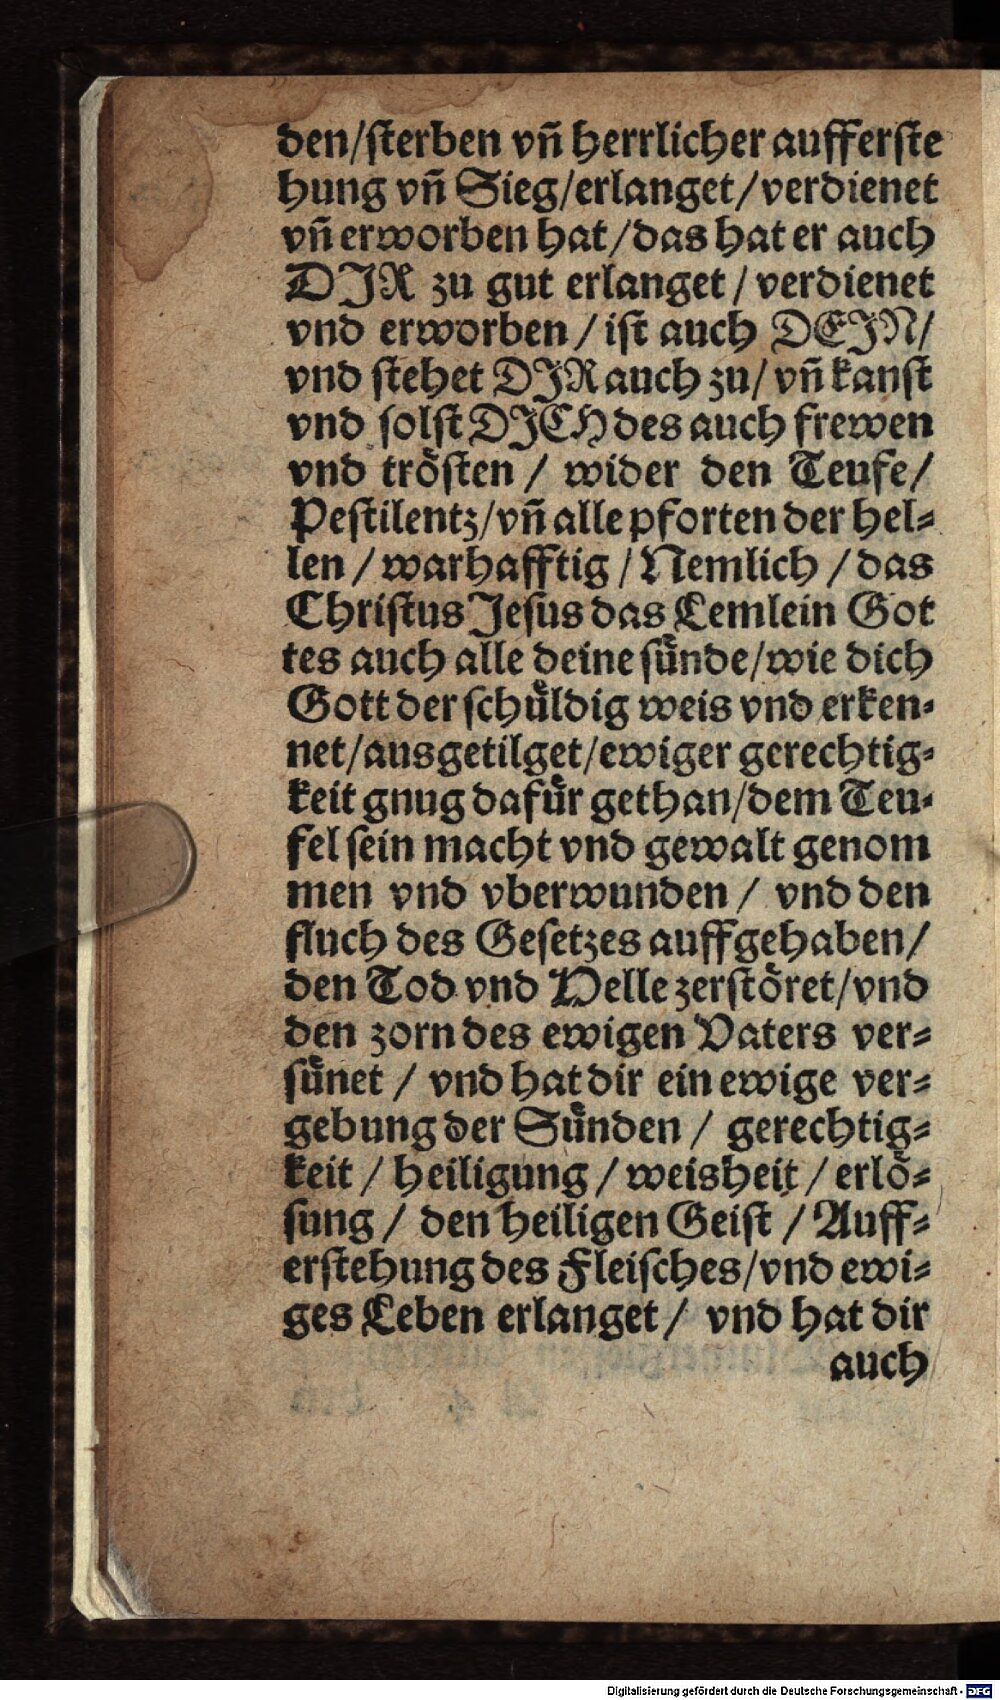 den/sterben vñ herrlicher aufferste
hung vñ Sieg/erlanget/verdienet
vñ erworben hat/das hat er auch
DIR zu gut erlanget/verdienet
vnd erworben/ist auch DEIN/
vnd stehet DIR auch zu/vñ kanst
vnd solst DICH des auch frewen
vnd troͤsten/ wider den Teufe/
Pestilentz/vñ alle pforten der hel-
len/warhafftig/Nemlich/das
Christus Jesus das Lemlein Got
tes auch alle deine suͤnde/wie dich
Gott der schuͤldig weis vnd erken-
net/ausgetilget/ewiger gerechtig-
keit gnug dafuͤr gethan/dem Teu-
fel sein macht vnd gewalt genom
men vnd vberwunden/ vnd den
fluch des Gesetzes auffgehaben/
den Tod vnd Helle zerstoͤret/vnd
den zorn des ewigen Vaters ver-
suͤnet/ vnd hat dir ein ewige ver-
gebung der Suͤnden/ gerechtig-
keit/heiligung/weisheit/erloͤ-
sung/ den heiligen Geist/Auff-
erstehung des Fleisches/vnd ewi-
ges Leben erlanget/ vnd hat dir
auch
Digitalisierung gefördert durch die Deutsche Forschungsgemeinschaft - DFG